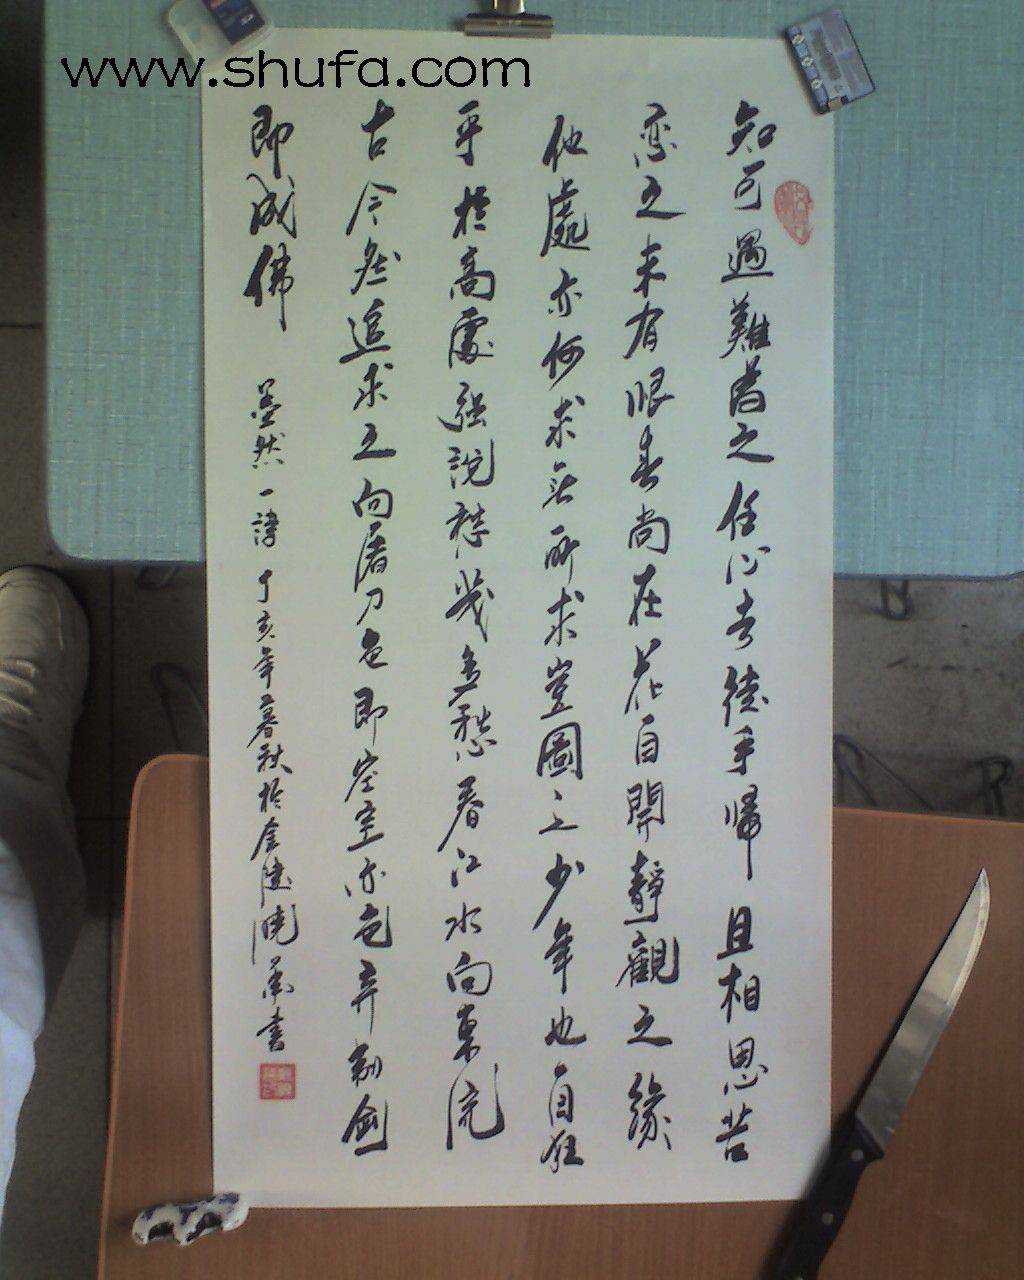 www.shufa.com
知可遇難舊之任心去徒手歸且相思苦
戀之未有恨春尚在花自開靜觀之緣
他處亦何求無所求豈圖之少年也自狂
乎於高處強說愁幾多愁春江水向東流
古今追求之向屠刀色即空空亦色弃劍
即成佛
墨然一諱丁亥年暮秋於金陵曉書